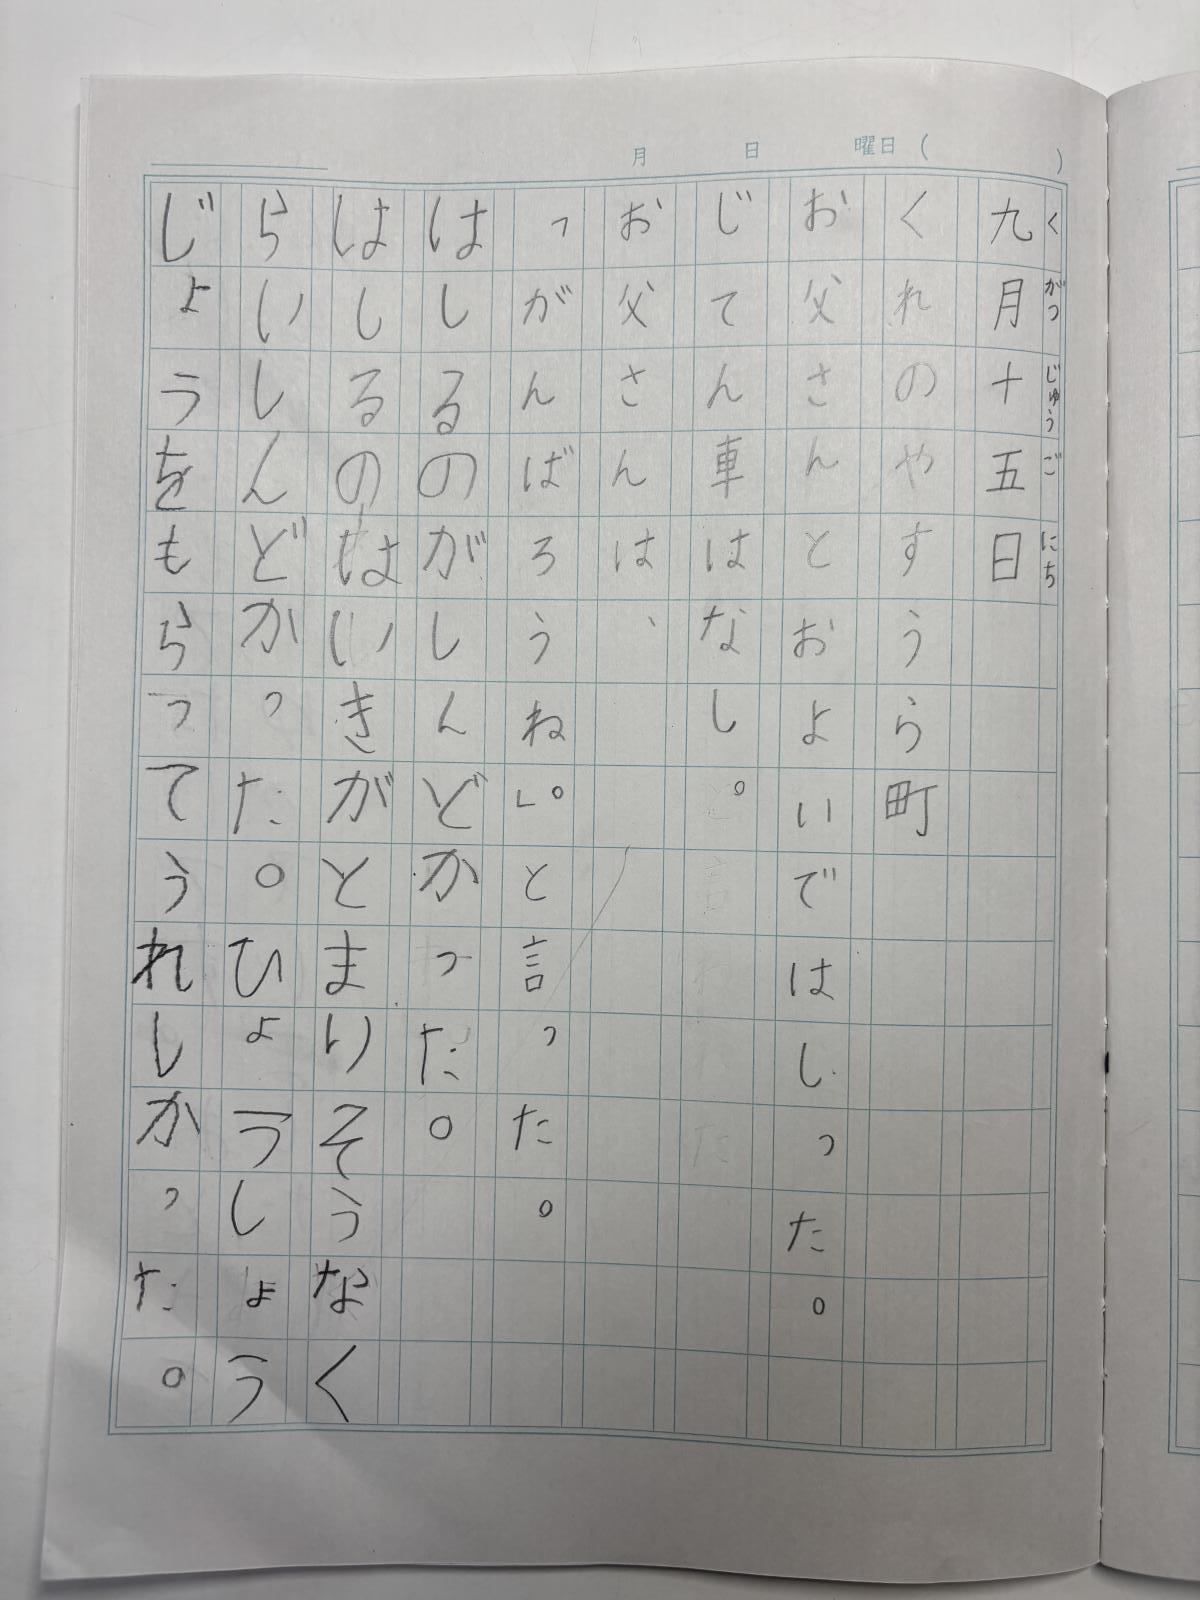 月 日 曜日（ ）
九月十五日
くがつじゅうごにち
くれのやすうら町
お父さんとおよいではしった。
じてん車はなし。
お父さんは、
「がんばろうね。」と言った。
はしるのがしんどかった。
はしるのはいきがとまりそうなく
らいしんどかった。ひょうしょう
じょうをもらってうれしかった。